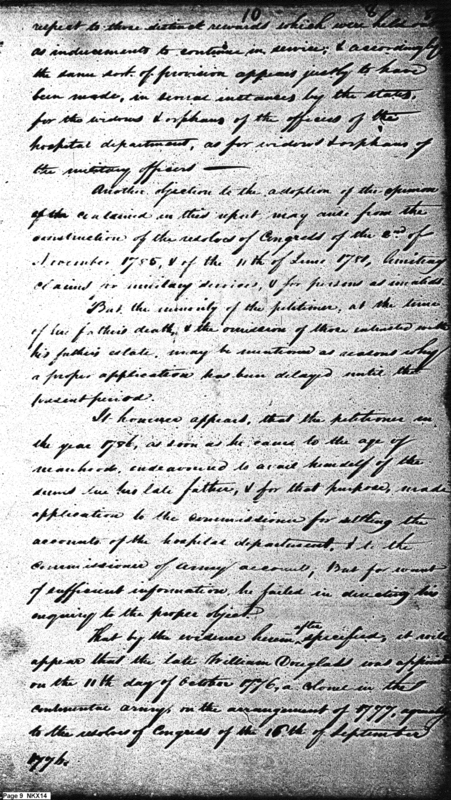 10
respect to those distinct rewards which were held out
as inducements to continue in service; & accordingly
the same sort of provision appears justly to have
been made, in several instances by the states,
for the widows & orphans of the officers of the
hospital department, as for widows & orphans of
the military officers —
Another objection to the adoption of the opinion
contained in this report may arise from the
construction of the resolves of Congress of the 2nd of
November 1785, & of the 11th of June 1788, limiting
claims for military services, & for persons as invalids.
But, the minority of the petitioner, at the time
of his father's death, & the omission of those intrusted with
his father's estate, may be mentioned as reasons why
a proper application has been delayed until the
present period.
It however appears, that the petitioner in
the year 1786, as soon as he came to the age of
manhood, endeavoured to avail himself of the
sums due his late father, & for that purpose, made
application to the commissioner for settling the
accounts of the hospital department, & to the
commissioner of army accounts, But for want
of sufficient information he failed in directing his
enquiry to the proper object.
That by the evidence herein after specified, it will
appear that the late William Douglass was appointed
on the 11th day of October 1776, a colonel in the
continental army, on the arrangement of 1777, agreeably
to the resolves of Congress of the 16th of September
1776.
Page 9 NKX14